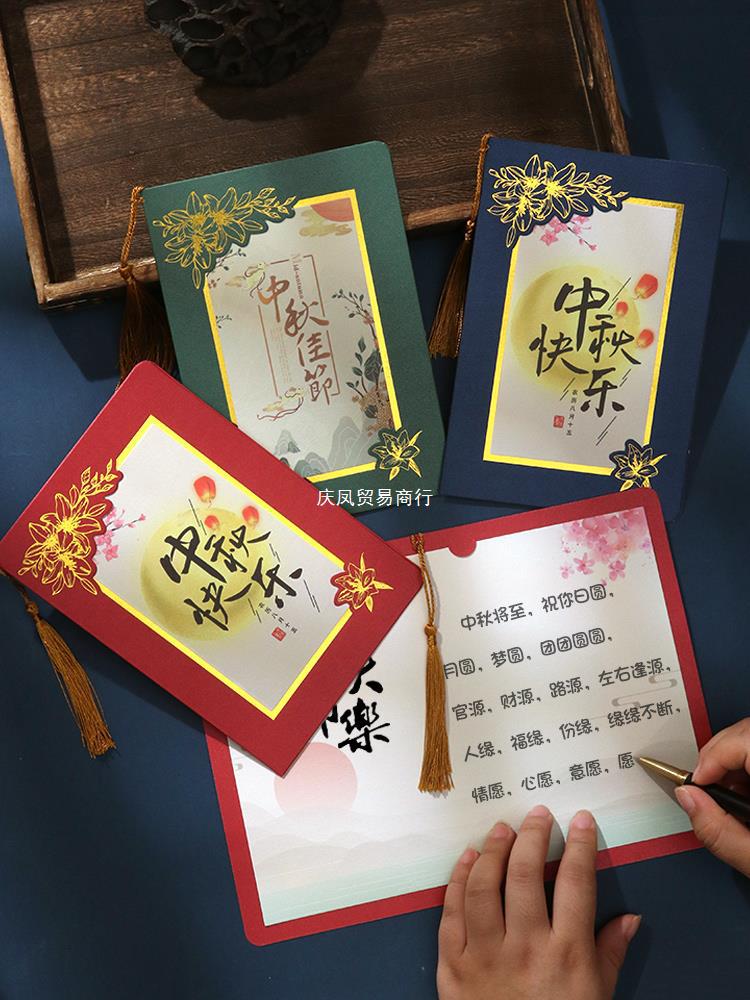 中秋佳節
中秋
快乐
农历八月十五
庆凤贸易商行
中秋
快乐
农历八月十五
樂
中秋将至，祝你日圆，
月圆，梦圆，团团圆圆，
官源，财源，路源，左右逢源，
人缘，福缘，份缘，缘缘不断，
情愿，心愿，意愿，愿